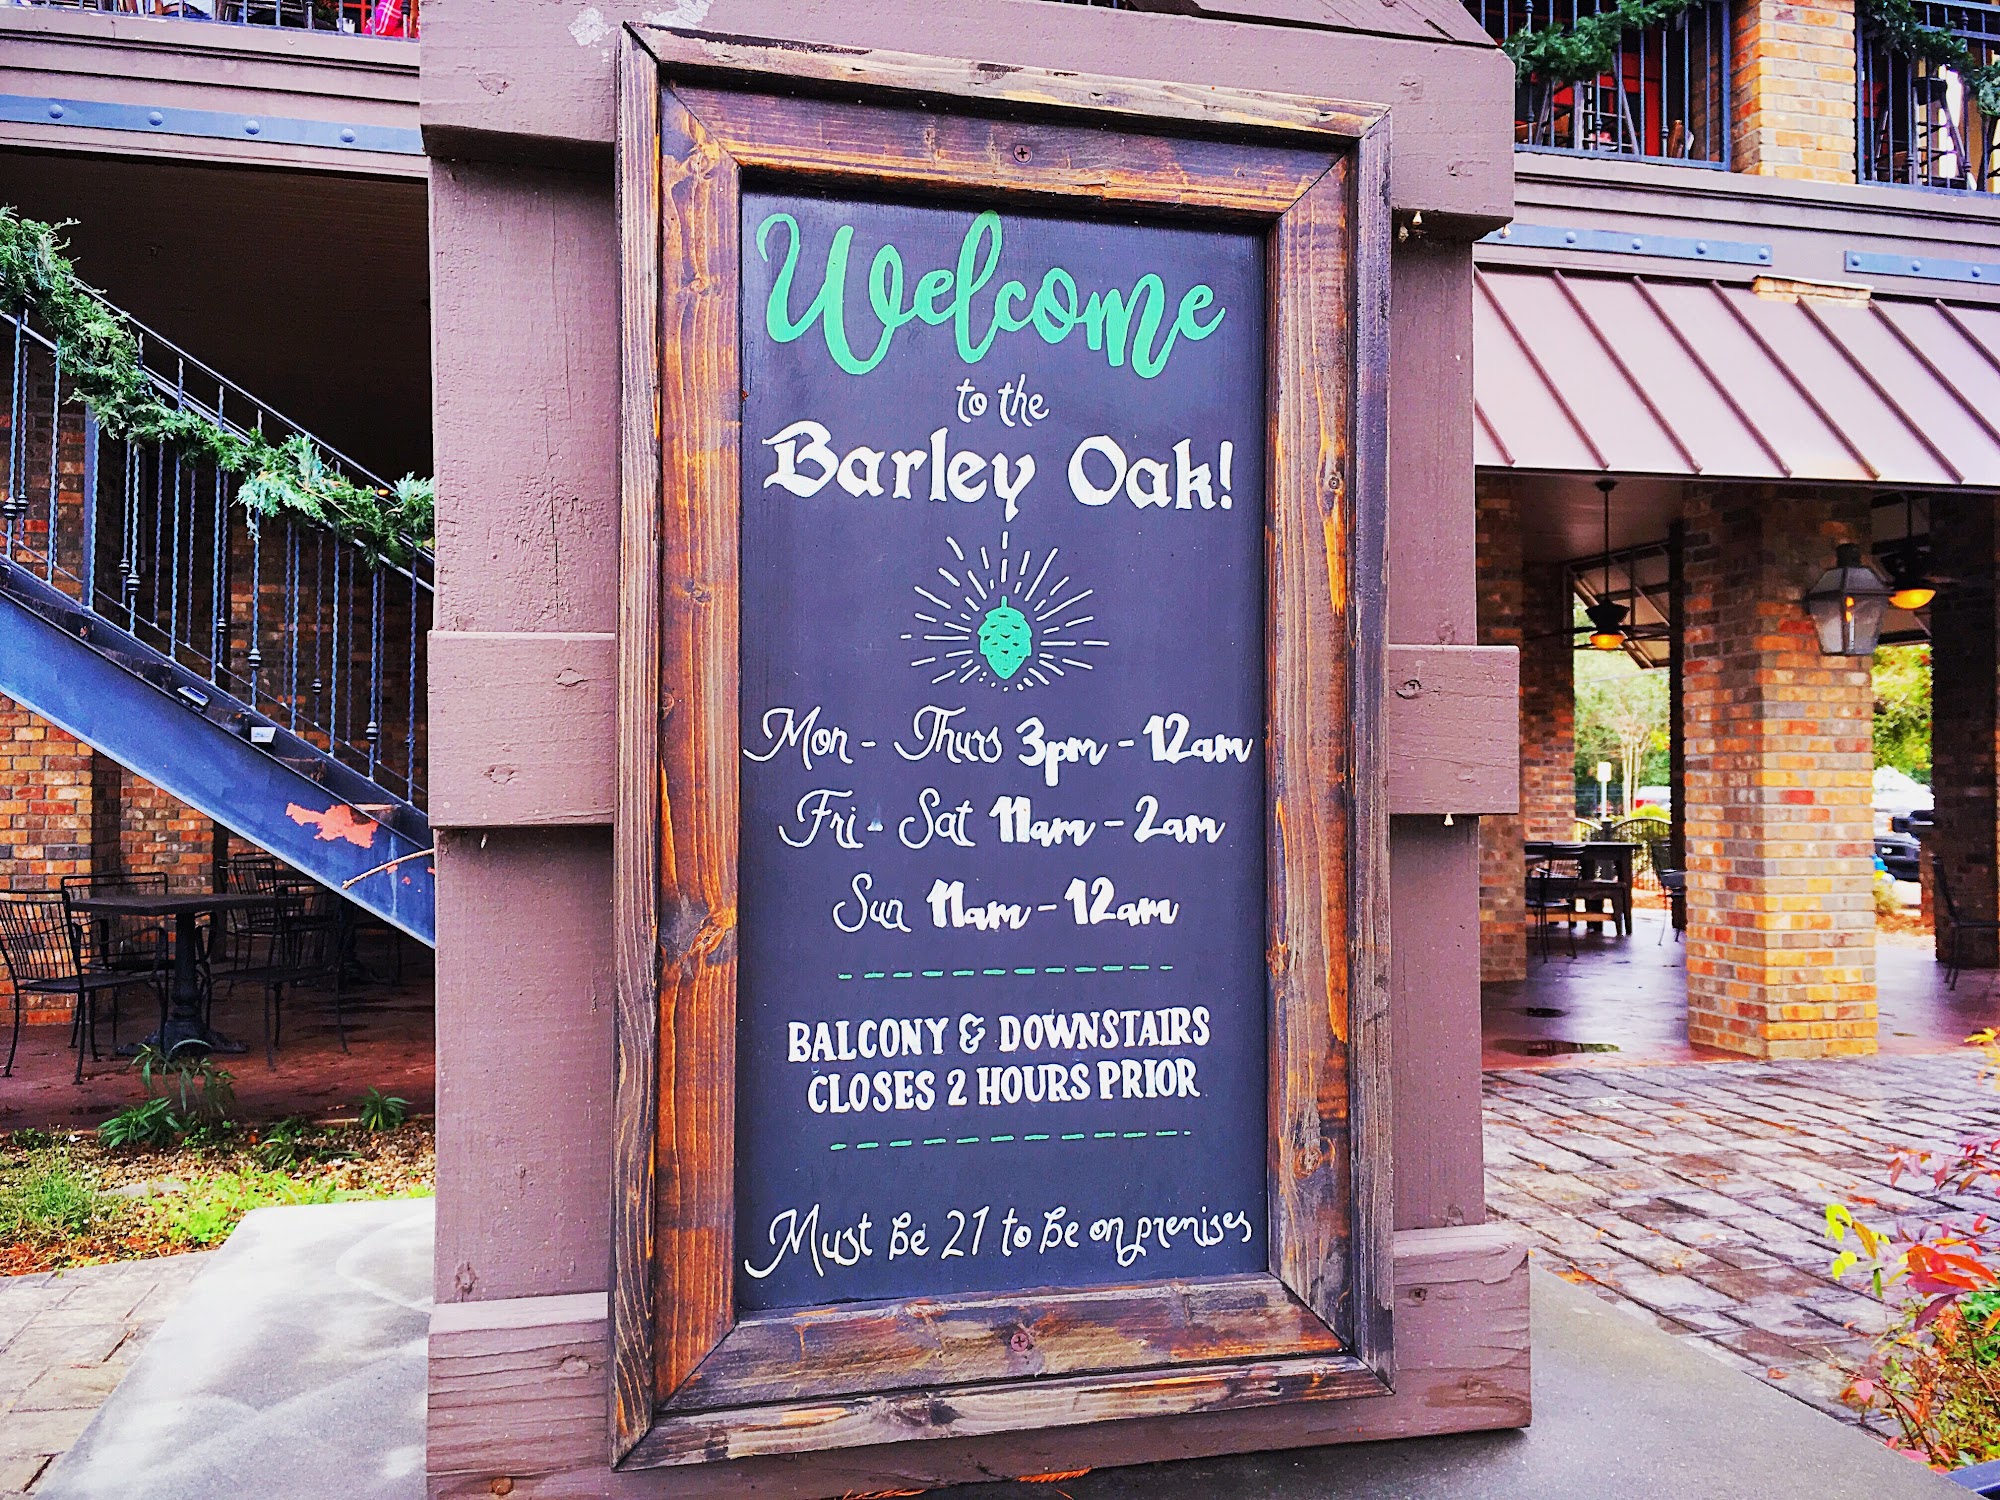 Welcome
to the
Barley Oak!
Mon - Thurs 3pm - 12am
Fri - Sat 11am - 2am
Sun 11am - 12am
BALCONY & DOWNSTAIRS
CLOSES 2 HOURS PRIOR
Must be 21 to be on premises